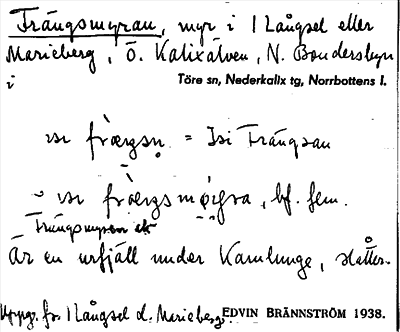 Trångsmyran, myr i 1 Långsel eller
Marieberg, ö. Kalixälven, N. Bondersbyn
i Töre sn, Nederkalix tg, Norrbottens l.
= Isi Trångsan
bf. fem.
Trångsmyran
Är en urfjäll under Kamlunge, slåtter.
Uppg. fr. 1 Långsel d. Marieberg. EDVIN BRÄNNSTRÖM 1938.